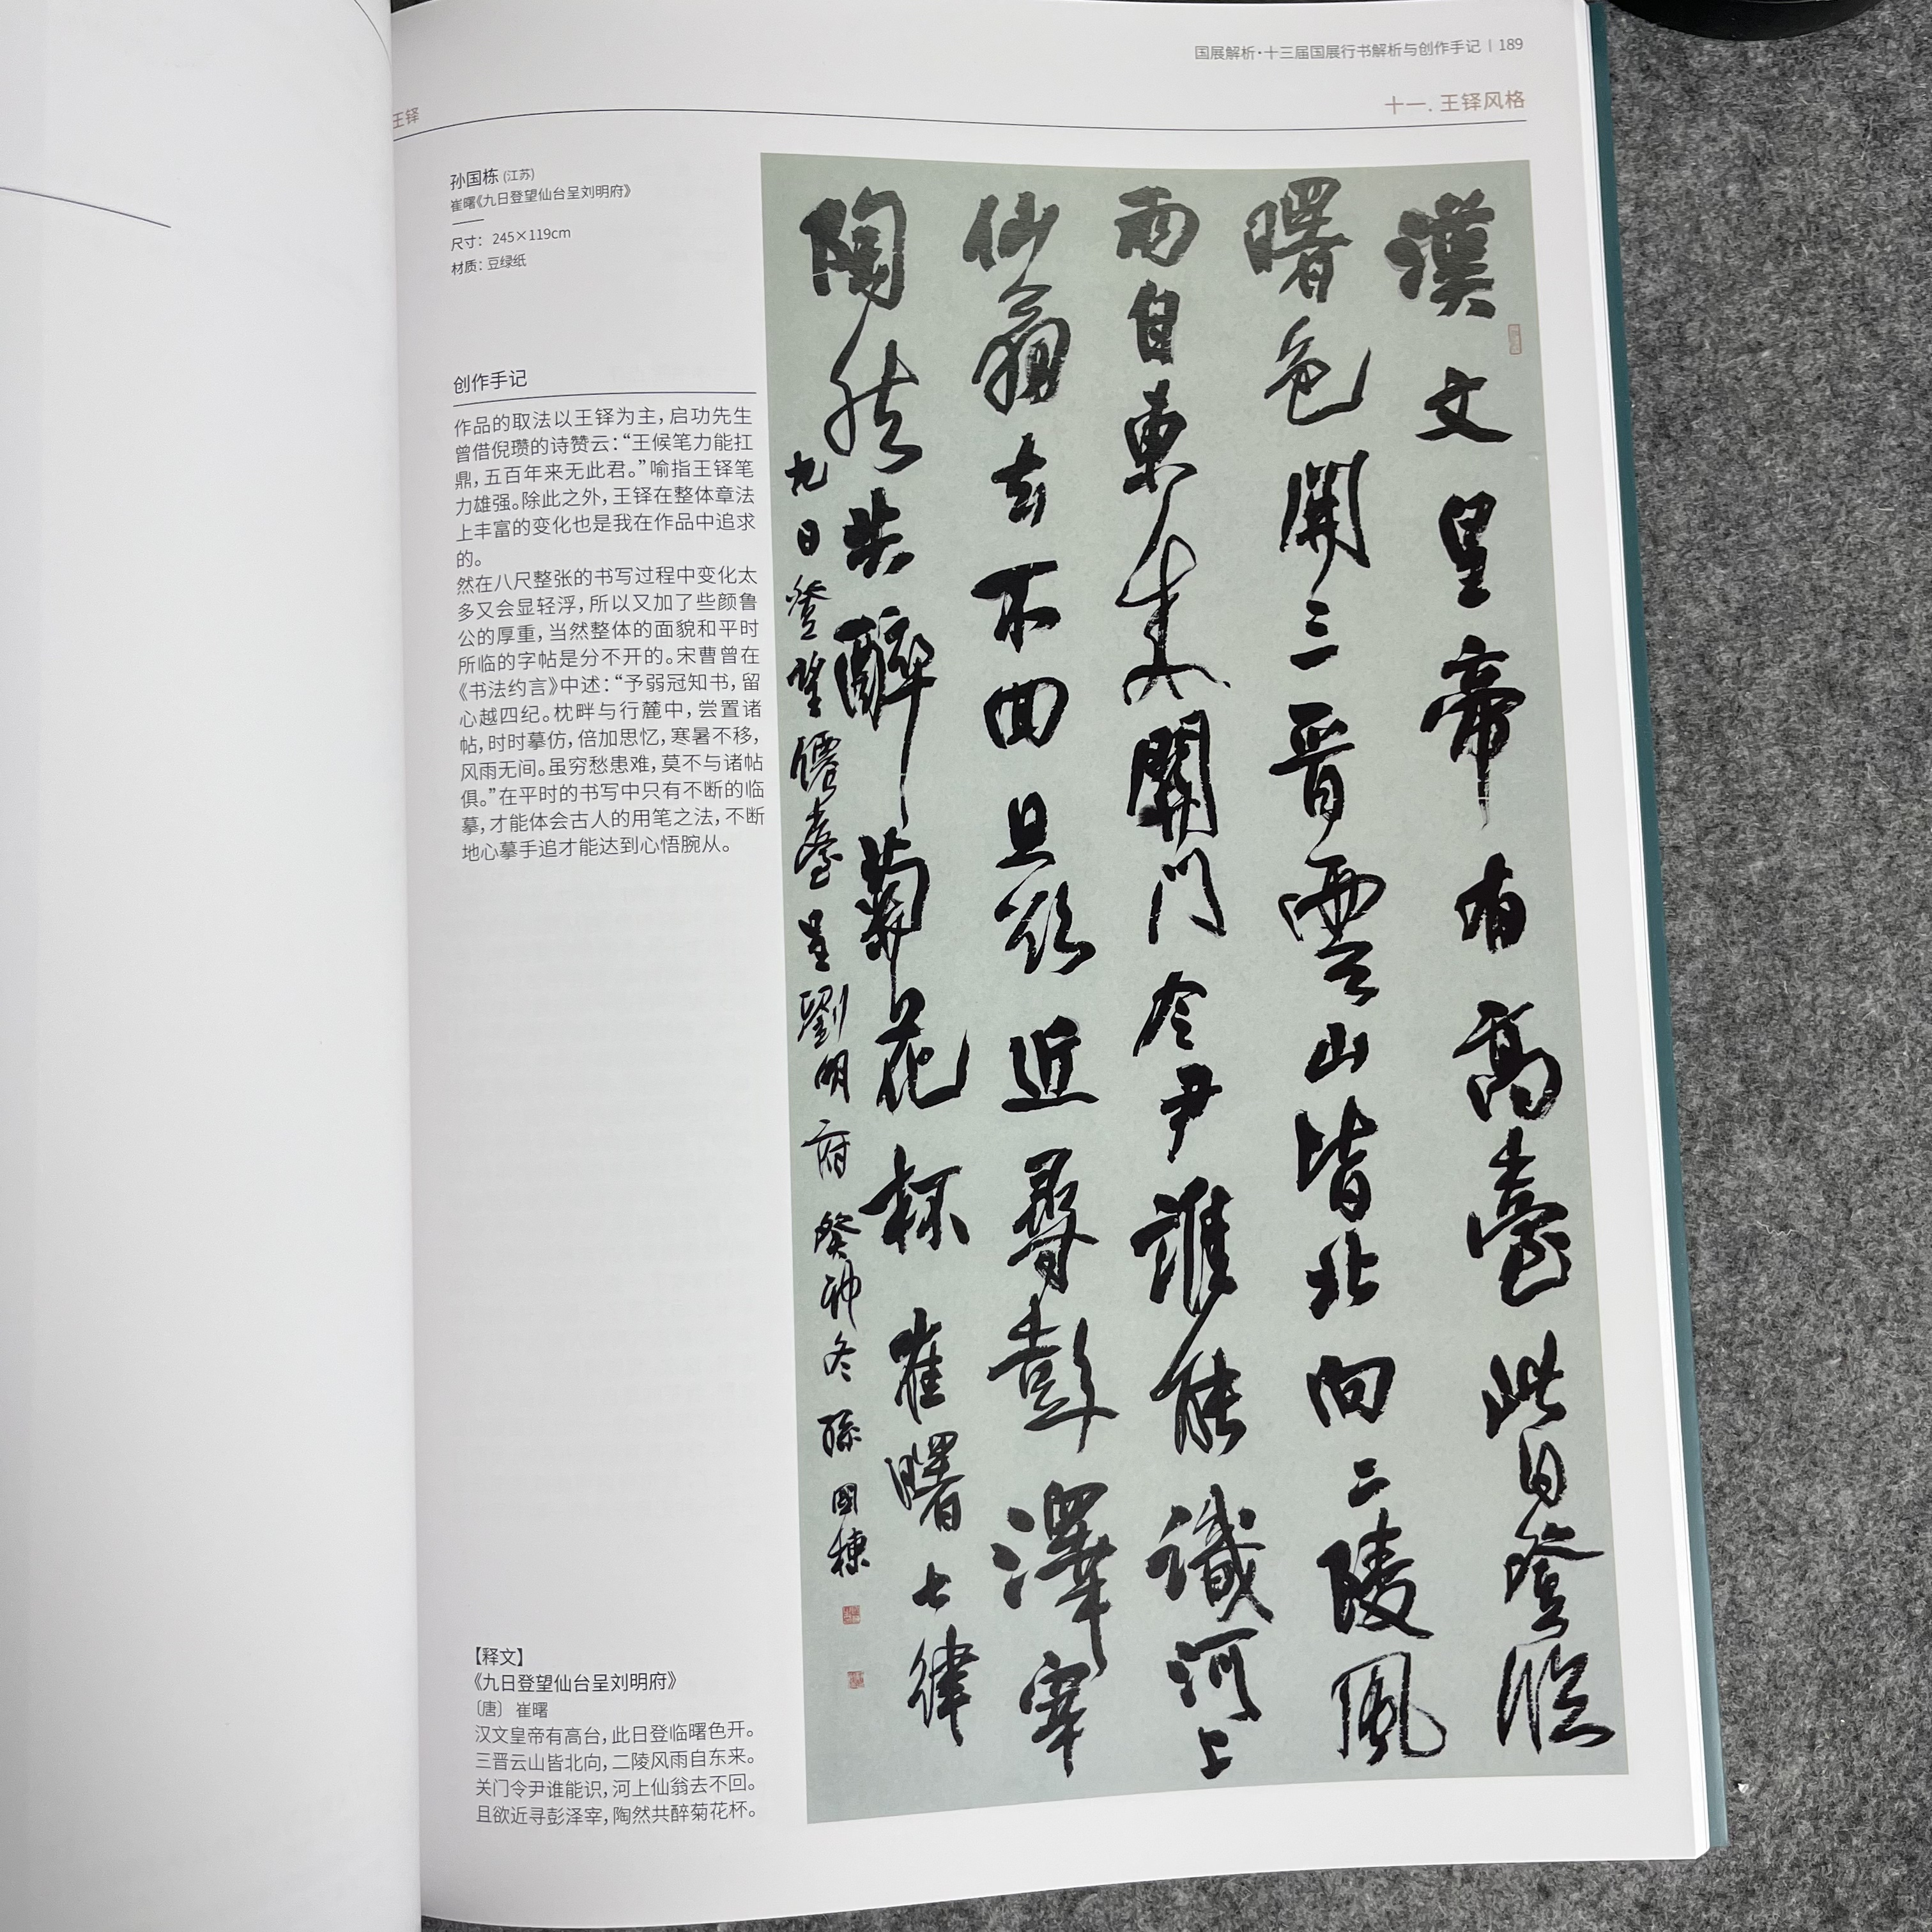 国展解析·十三届国展行书解析与创作手记 | 189
王铎
十一. 王铎风格
孙国栋 (江苏)
崔曙《九日登望仙台呈刘明府》
尺寸: 245×119cm
材质: 豆绿纸
创作手记
作品的取法以王铎为主，启功先生
曾借倪瓒的诗赞云：“王候笔力能扛
鼎，五百年来无此君。”喻指王铎笔
力雄强。除此之外，王铎在整体章法
上丰富的变化也是我在作品中追求
的。
然在八尺整张的书写过程中变化太
多又会显轻浮，所以又加了些颜鲁
公的厚重，当然整体的面貌和平时
所临的字帖是分不开的。宋曹曾在
《书法约言》中述：“予弱冠知书，留
心越四纪。枕畔与行麓中，尝置诸
帖，时时摹仿，倍加思忆，寒暑不移，
风雨无间。虽穷愁患难，莫不与诸帖
俱。”在平时的书写中只有不断的临
摹，才能体会古人的用笔之法，不断
地心摹手追才能达到心悟腕从。
【释文】
《九日登望仙台呈刘明府》
〔唐〕 崔曙
汉文皇帝有高台，此日登临曙色开。
三晋云山皆北向，二陵风雨自东来。
关门令尹谁能识，河上仙翁去不回。
且欲近寻彭泽宰，陶然共醉菊花杯。
漢文皇帝有高臺此日登臨
曙色開三晋雲山皆北向二陵風
雨自東来關門令尹誰能識河上
仙翁去不回且欲近尋彭澤宰
陶然共醉菊花杯 崔曙七律
九日登望僊臺呈劉明府 癸卯冬 孫國棟